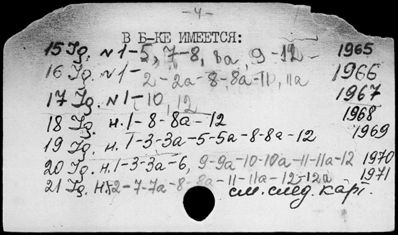 - 4 -
В Б-КЕ ИМЕЕТСЯ:
15 Jg. N 1-5, 7-8, 8a, 9-12 1965
16 Jg. N 1-2-2a-8-8a-10, 11a 1966
17 Jg. N 1-10, 12 1967
18 Jg. н. 1-8-8a-12 1968
19 Jg. н. 1-3-3a-5-5a-8-8a-12 1969
20 Jg. н. 1-3-3a-6, 9-9a-10-10a-11-11a-12 1970
21 Jg. 2-7-7a-8-8a-11-11a-12-12a 1971
см. след. карт.